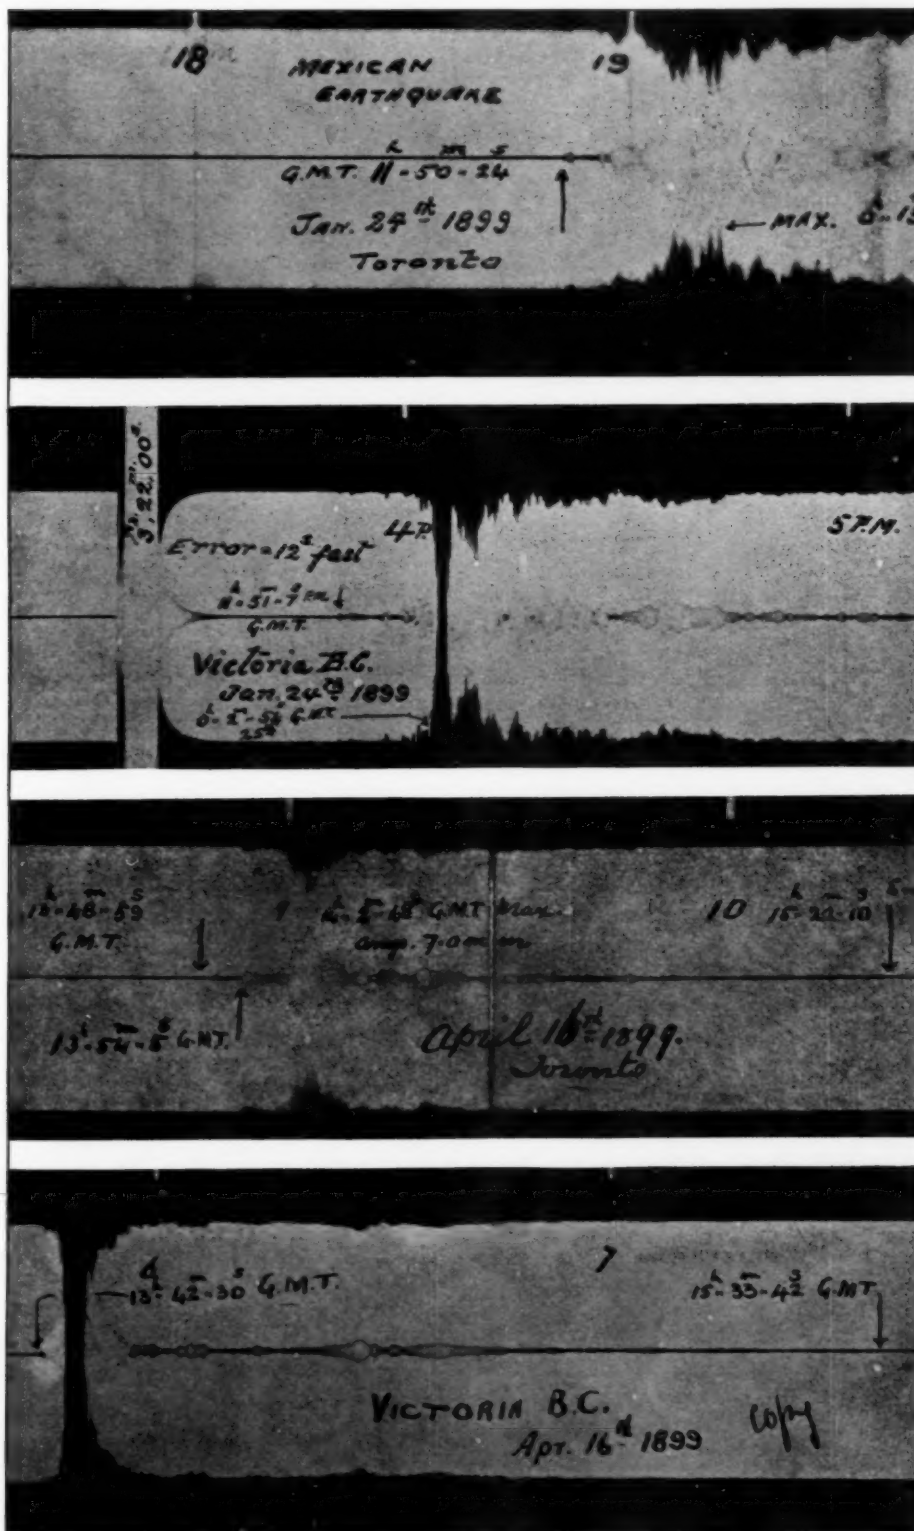 18
MEXICAN
EARTHQUAKE
19
h m s
G.M.T. 11-50-24
JAN. 24th 1899
Toronto
MAX.
h. m. s.
3, 22, 00
4 P.
5 P.M.
Error = 12s fast
h m s
11-51-7 P.M.
G.M.T.
Victoria B.C.
Jan. 24th 1899
G.M.T.
h m s
13-48-59
G.M.T.
9
G.M.T. Max.
amp. 7.0 mm
10
h m s
15-22-10
h m s
13-54-5 G.M.T.
April 16th 1899.
Toronto
h m s
13-42-30 G.M.T.
7
h m s
15-33-42 G.M.T
VICTORIA B.C.
Apr. 16th 1899
copy